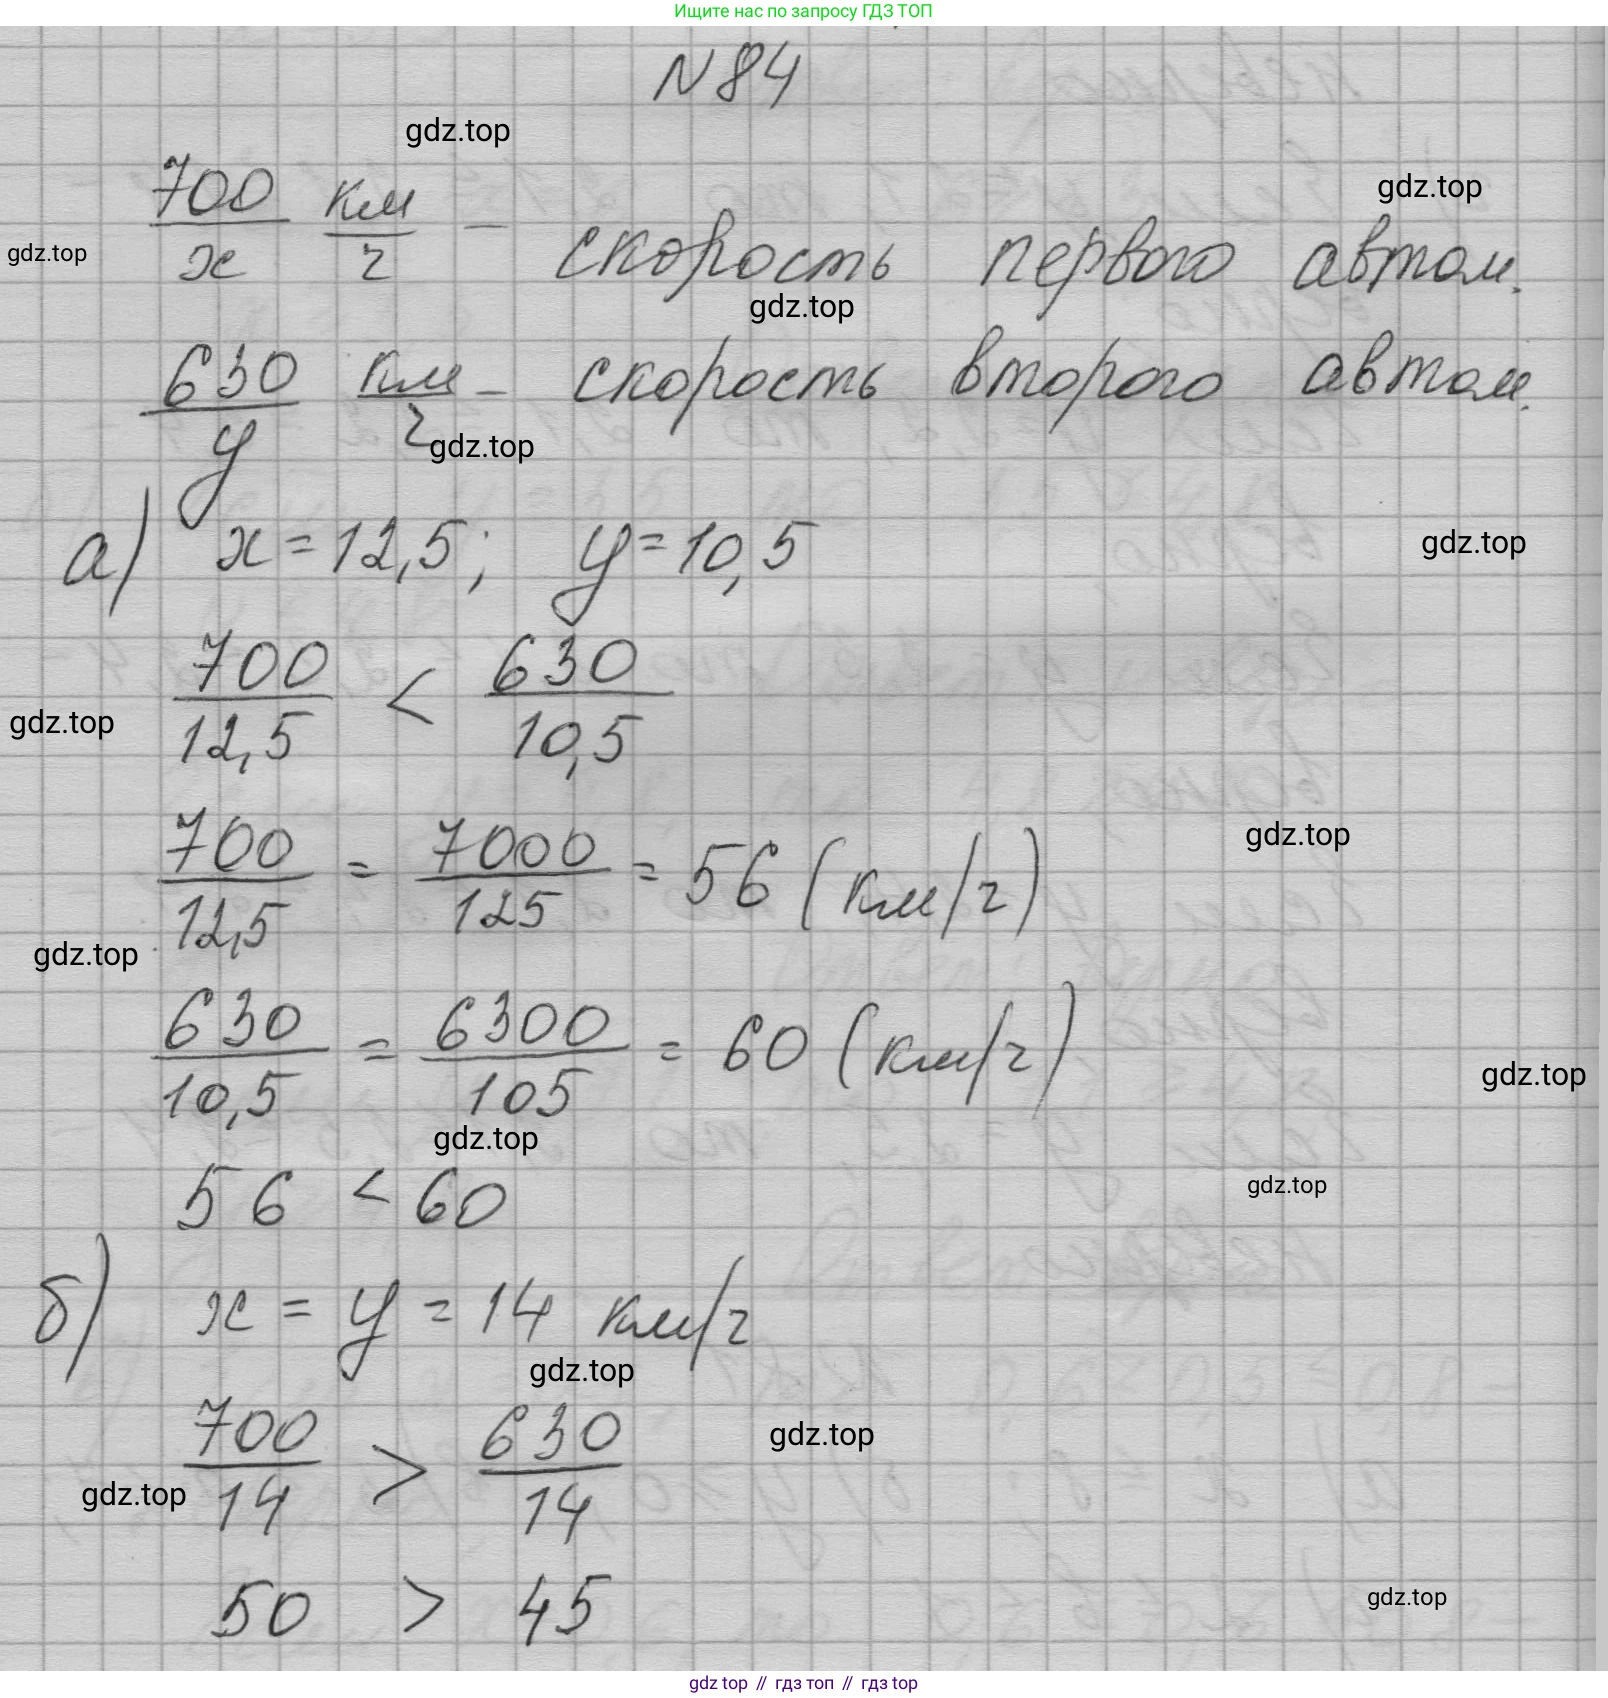 Ищите нас по запросу ГДЗ ТОП
N84
gdz.top
700/x км/ч — скорость первого автом.
gdz.top
gdz.top
gdz.top
630/y км/ч — скорость второго автом.
gdz.top
а) x = 12,5; y = 10,5
gdz.top
700/12,5 < 630/10,5
gdz.top
700/12,5 = 7000/125 = 56 (км/ч)
gdz.top
gdz.top
630/10,5 = 6300/105 = 60 (км/ч)
gdz.top
gdz.top
56 < 60
gdz.top
б) x = y = 14 км/ч
gdz.top
700/14 > 630/14
gdz.top
gdz.top
50 > 45
gdz.top
gdz top // гдз топ // gdz top